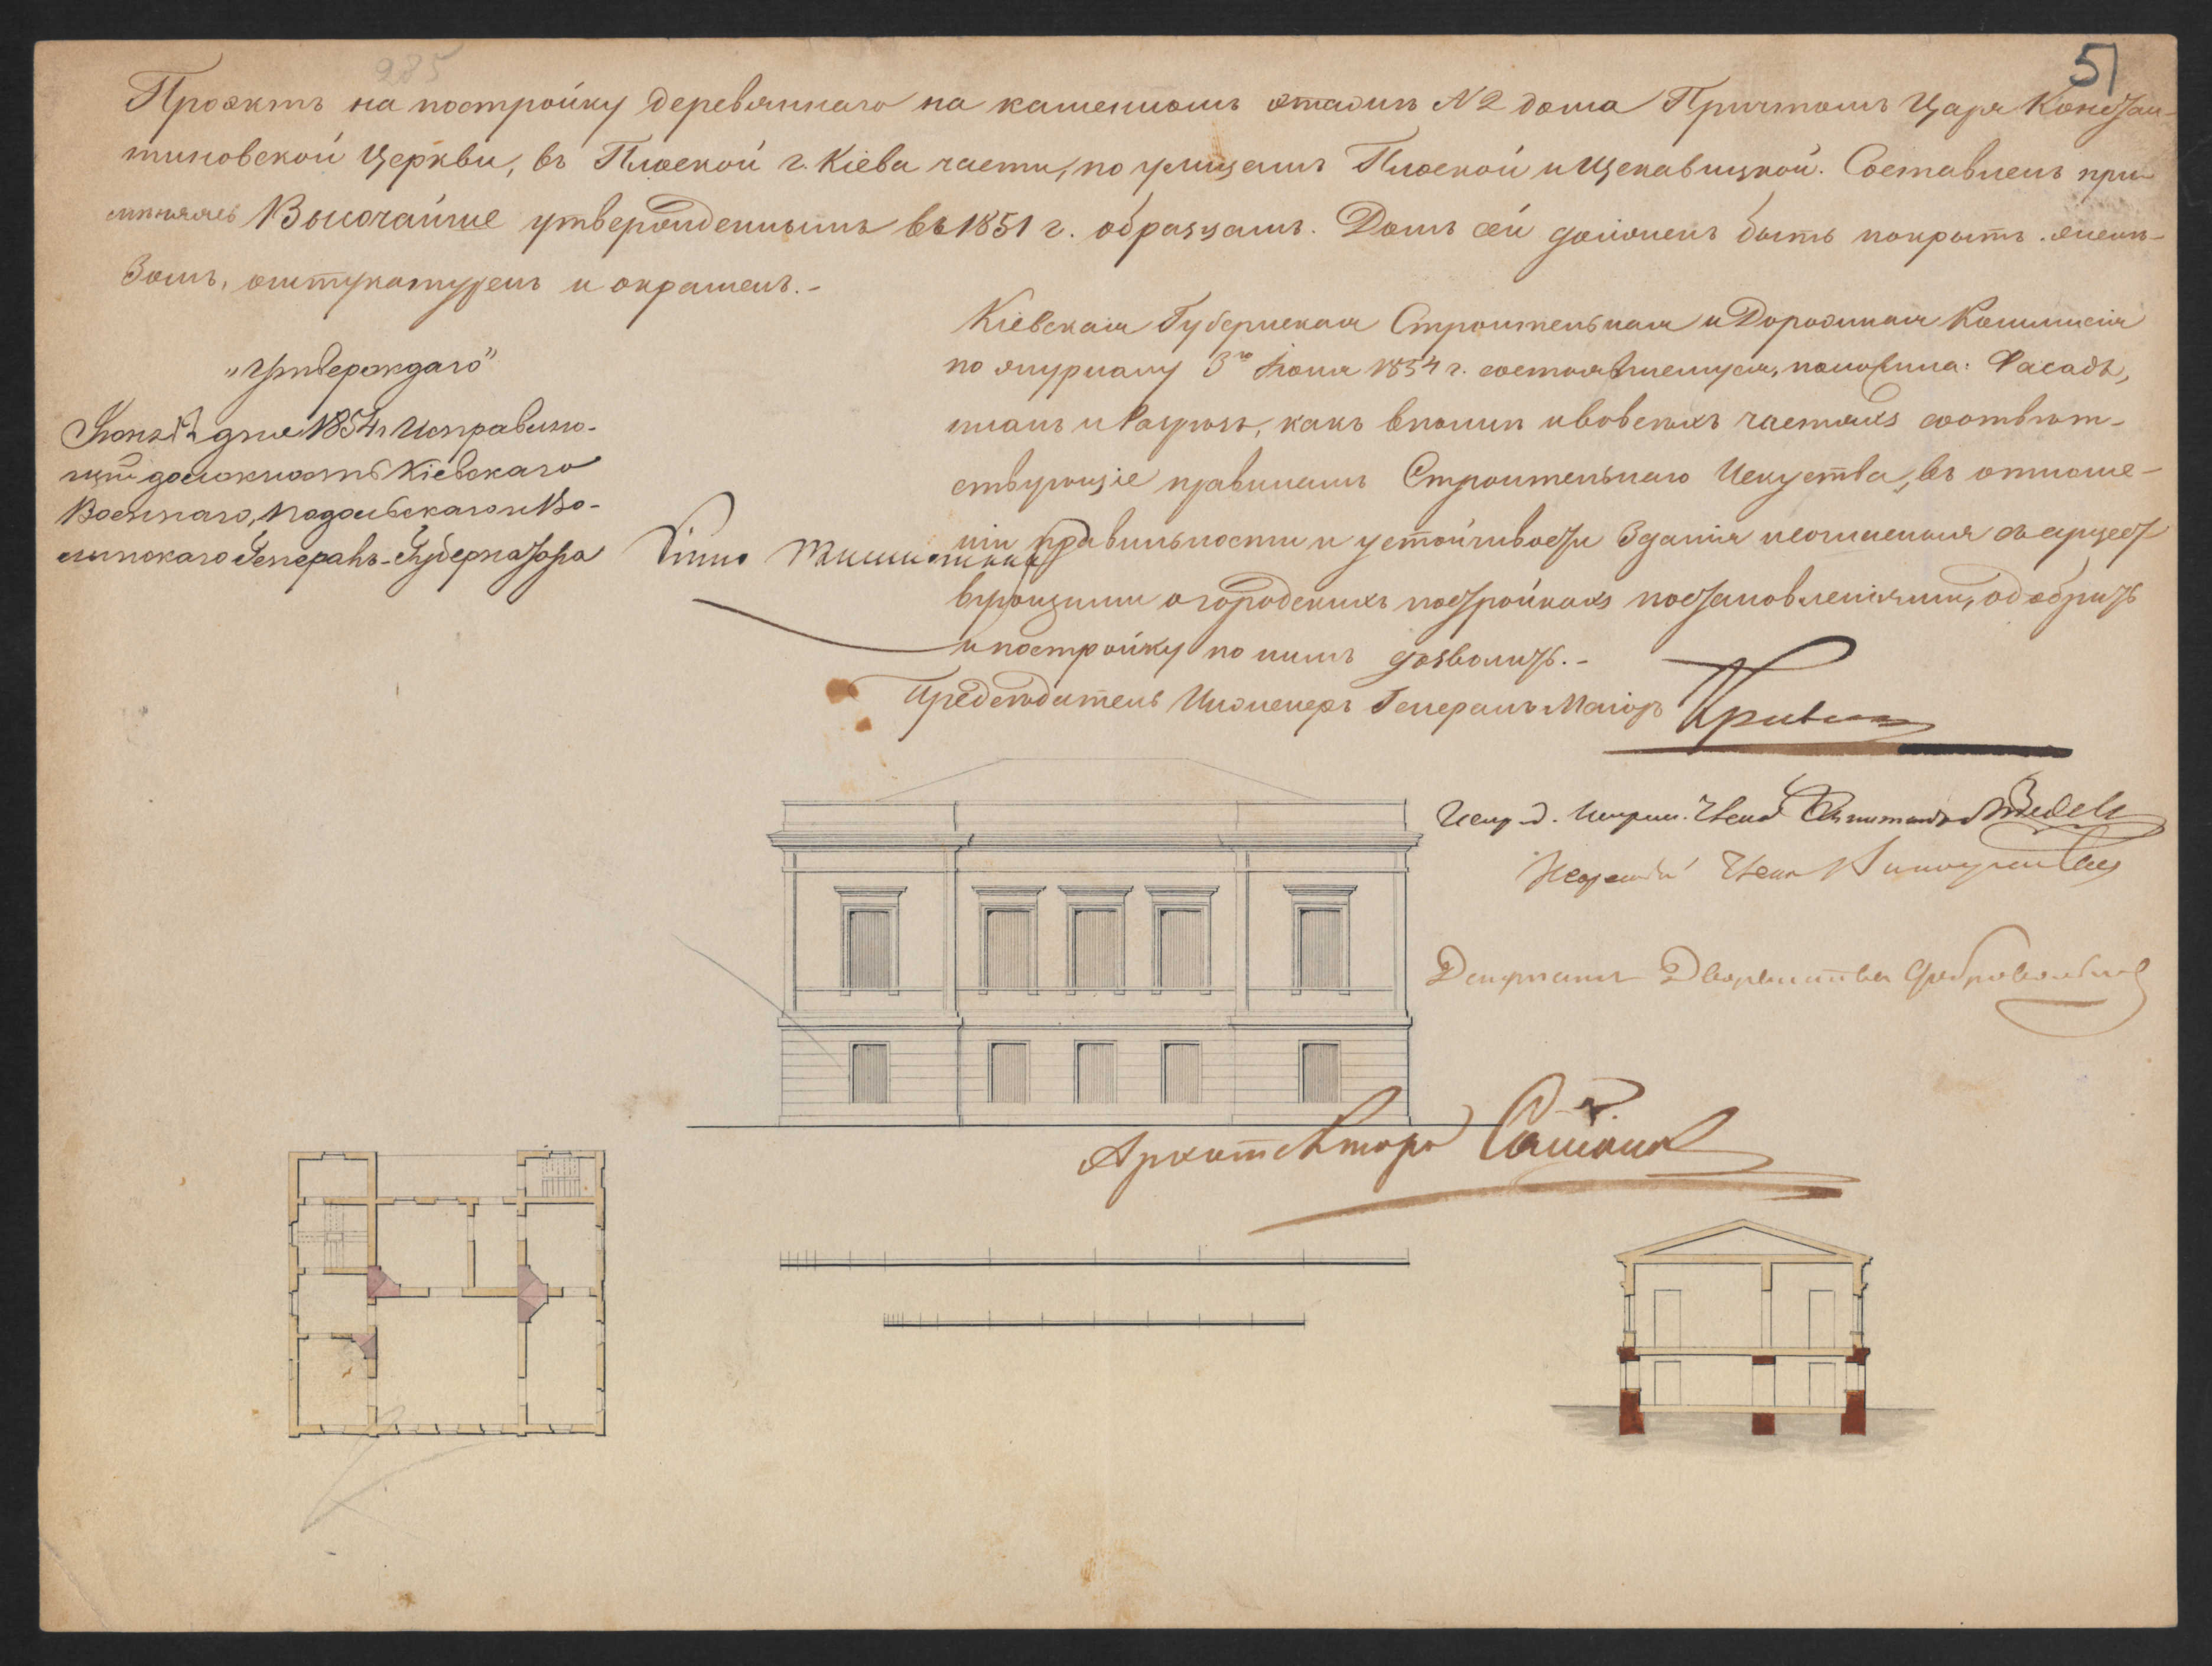 285
51
Проэктъ на постройку деревяннаго на каменномъ этажѣ № 2 дома Причтомъ Царе Констан-
тиновской Церкви, въ Плоской г. Кіева части, по улицамъ Плоской и Щекавицкой. Составленъ при-
мѣняясь Высочайше утвержденнымъ въ 1851 г. образцамъ. Домъ сей долженъ быть покрытъ желѣ-
зомъ, оштукатуренъ и окрашенъ.-
„Утверждаю"
Іюня дня 1854 г. Исправляю-
щій должность Кіевскаго
Военнаго, Подольскаго и Во-
лынскаго Генералъ-Губернатора
Кіевская Губернская Строительная и Дорожная Коммисія
по журналу 3го Іюня 1854 г. состоявшемуся, положила: Фасадъ,
планъ и Разрѣзъ, какъ вполнѣ и во всѣхъ частяхъ соотвѣт-
ствующіе правиламъ Строительнаго Искуства, въ отноше-
ніи правильности и устойчивости зданія и согласныя съ сущест-
вующими о городскихъ постройкахъ постановленіями, одобрить
и постройку по нимъ дозволить.-
Предсѣдатель Инженеръ Генералъ Маіоръ
Испр. д. Искусн. Члена Капитанъ
Членъ
Депутатъ Дворянства
Архитекторъ